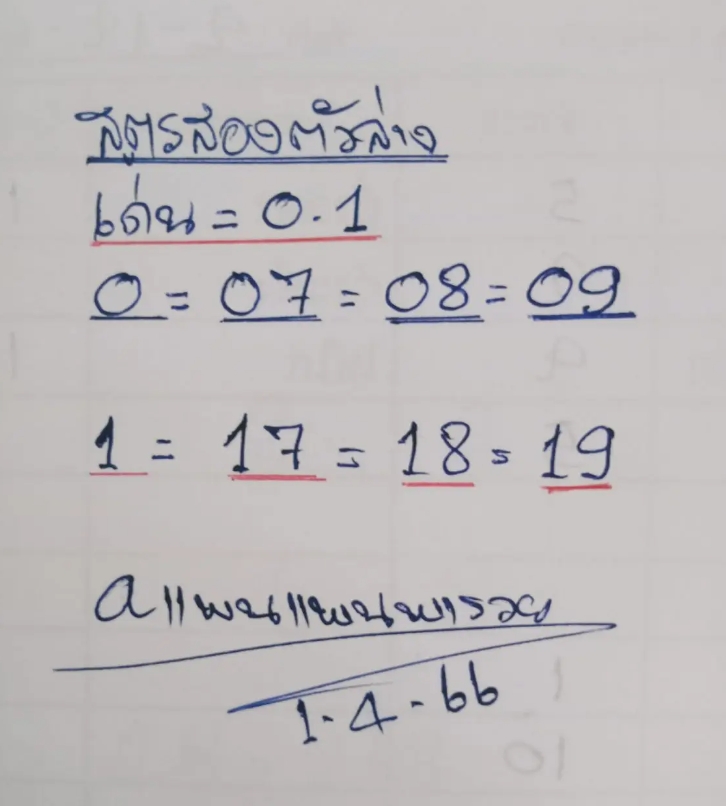 สูตรสองตัวล่าง
เด่น = 0.1
0 = 07 = 08 = 09
1 = 17 = 18 = 19
a แพนแพนพารวย
1-4-66